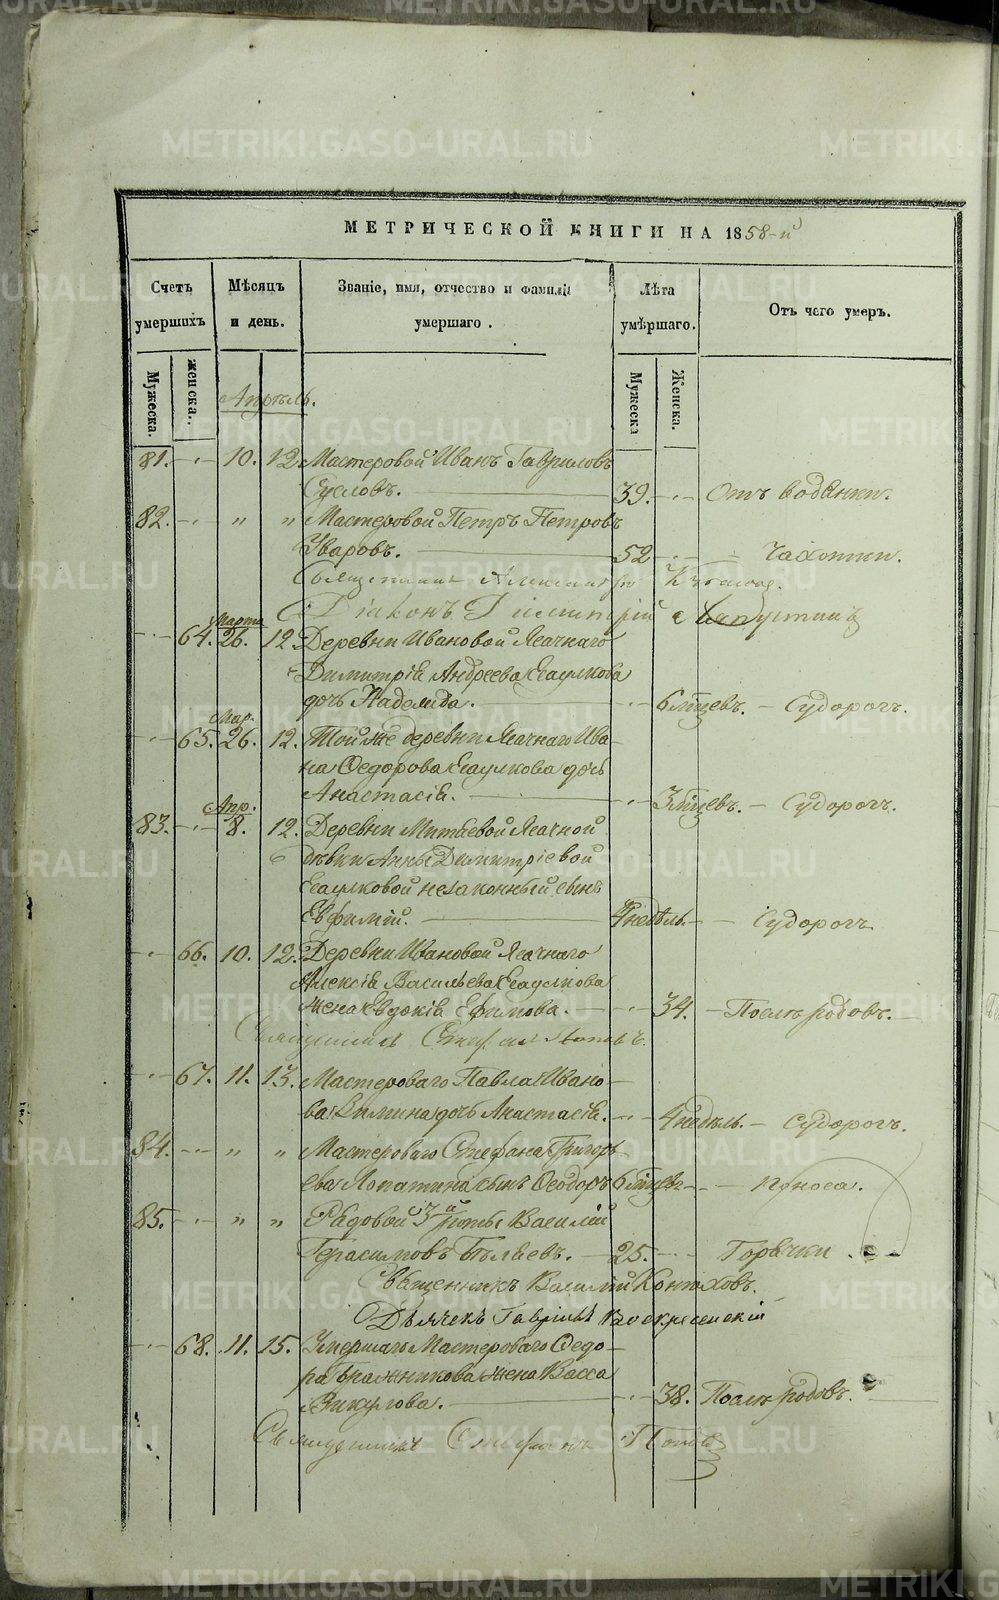 МЕТРИЧЕСКОЙ КНИГИ НА 1858-й
Счетъ умершихъ
Мѣсяцъ и день.
Званіе, имя, отчество и фамилія умершаго.
Лѣта умершаго.
Отъ чего умеръ.
Мужеска.
женска.
Мужеска
Женска.
Апрѣль.
81. 10. 12. Мастеровой Иванъ Гавриловъ
Сусловъ. 39. Отъ водянки.
82. " " Мастеровой Петръ Петровъ
Уваровъ. 52 Чахотки.
Священникъ
Діаконъ Димитрій
Марта
64. 26. 12. Деревни Ивановой Ясачнаго
Димитрія Андреева Есаулкова
дочь Надежда. 6 мцевъ. Судорогъ.
Мар.
65. 26. 12. Той же деревни Ясачнаго Ива-
на Федорова Есаулкова дочь
Анастасія. 3 мцевъ. Судорогъ.
Апр.
83. 8. 12. Деревни Ясачной
дѣвки Анны Димитріевой
Есаулковой незаконный сынъ
Евфимій. 4 недѣль. Судорогъ
66. 10. 12. Деревни Ивановой Ясачнаго
Алексія Васильева Есаулкова
жена Евдокія Ефимова. 34. Послѣ родовъ.
Священникъ Стефанъ Поповъ.
67. 11. 13. Мастероваго Павла Ивано-
ва Зимина дочь Анастасія. 4 недѣль. Судорогъ.
84. " " Мастероваго Стефана Григорь-
ева Лопатина сынъ Ѳеодоръ 6 мцевъ Поноса.
85. " " Рядовой 3й роты Василій
Герасимовъ Бѣляевъ. 25. Горячки.
Священникъ Василій Конюховъ.
Дьячекъ Гавріилъ Воскресенскій
68. 11. 15. Умершаго Мастероваго Федо-
ра Бражникова жена Васса
Викулова. 38. Послѣ родовъ.
Священникъ Стефанъ Поповъ
METRIKI.GASO-URAL.RU